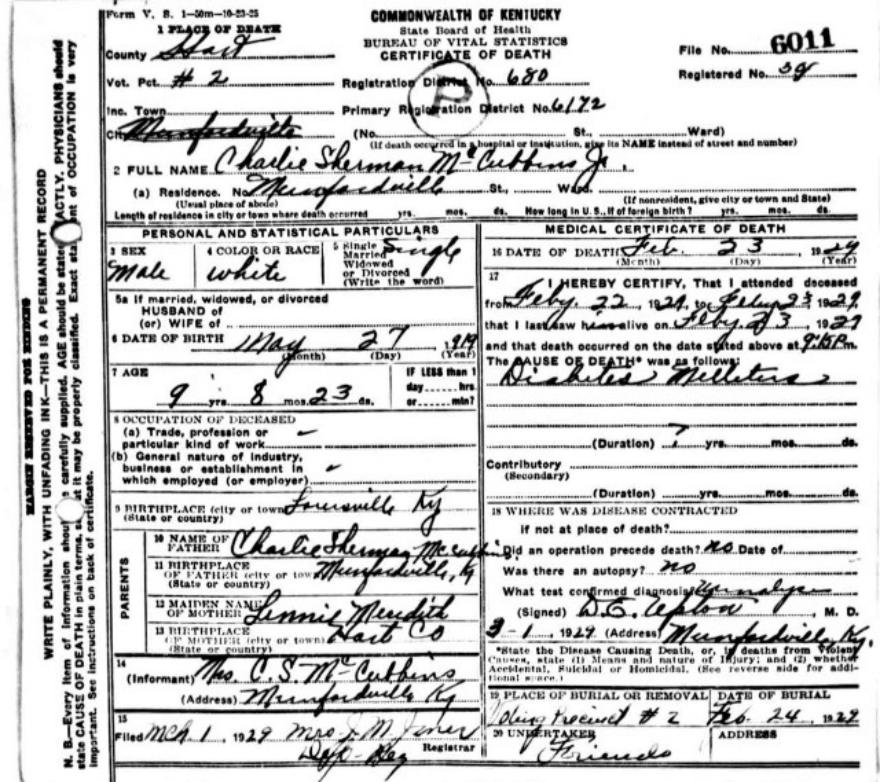 Form V. S. 1—50m—10-23-25
COMMONWEALTH OF KENTUCKY
State Board of Health
BUREAU OF VITAL STATISTICS
CERTIFICATE OF DEATH
1 PLACE OF DEATH
County Hart
File No. 6011
Vot. Pct. # 2
Registration District No. 680
Registered No. 39
P
Inc. Town
Primary Registration District No. 6172
City Munfordville
(No. St., Ward)
(If death occurred in a hospital or institution, give its NAME instead of street and number)
2 FULL NAME Charlie Sherman McCubbins Jr.
(a) Residence. No. Munfordville St., Ward.
(Usual place of abode) (If nonresident, give city or town and State)
Length of residence in city or town where death occurred yrs. mos. ds. How long in U. S., if of foreign birth? yrs. mos. ds.
PERSONAL AND STATISTICAL PARTICULARS
3 SEX
Male
4 COLOR OR RACE
White
5 Single
Married
Widowed
or Divorced
(Write the word)
Single
5a If married, widowed, or divorced
HUSBAND of
(or) WIFE of
6 DATE OF BIRTH May 27, 1919
(Month) (Day) (Year)
7 AGE
9 yrs. 8 mos. 23 ds.
IF LESS than 1
day hrs.
or min?
8 OCCUPATION OF DECEASED
(a) Trade, profession or
particular kind of work
(b) General nature of industry,
business or establishment in
which employed (or employer)
9 BIRTHPLACE (city or town) Louisville Ky
(State or country)
PARENTS
10 NAME OF
FATHER Charlie Sherman McCubbins
11 BIRTHPLACE
OF FATHER (city or town) Munfordville, Ky
(State or country)
12 MAIDEN NAME
OF MOTHER Lennie Meredith
13 BIRTHPLACE
OF MOTHER (city or town) Hart Co
(State or country)
14
(Informant) Mrs. C. S. McCubbins
(Address) Munfordville Ky
15
Filed Mch 1, 1929 Mrs J. M.
Registrar
Dep. Reg
MEDICAL CERTIFICATE OF DEATH
16 DATE OF DEATH Feb. 23, 1929
(Month) (Day) (Year)
17
I HEREBY CERTIFY, That I attended deceased
from Feby. 22, 1929, to Feby 23 1929
that I last saw him alive on Feby 23, 1929
and that death occurred on the date stated above at 9:15 P.m.
The CAUSE OF DEATH* was as follows:
Diabetes Melletus
(Duration) ? yrs. mos. ds.
Contributory
(Secondary)
(Duration) yrs. mos. ds.
18 WHERE WAS DISEASE CONTRACTED
if not at place of death?
Did an operation precede death? no Date of
Was there an autopsy? no
What test confirmed diagnosis?
(Signed) D. E. Upton, M. D.
3-1, 1929 (Address) Munfordville, Ky
*State the Disease Causing Death, or, in deaths from Violent
Causes, state (1) Means and nature of Injury; and (2) whether
Accidental, Suicidal or Homicidal. (See reverse side for addi-
tional space.)
19 PLACE OF BURIAL OR REMOVAL
Voting Precinct # 2
DATE OF BURIAL
Feb. 24, 1929
20 UNDERTAKER
Friends
ADDRESS
MARGIN RESERVED FOR BINDING
WRITE PLAINLY, WITH UNFADING INK—THIS IS A PERMANENT RECORD
N. B.—Every item of information should be carefully supplied. AGE should be stated EXACTLY. PHYSICIANS should
state CAUSE OF DEATH in plain terms, so that it may be properly classified. Exact statement of OCCUPATION is very
important. See instructions on back of certificate.